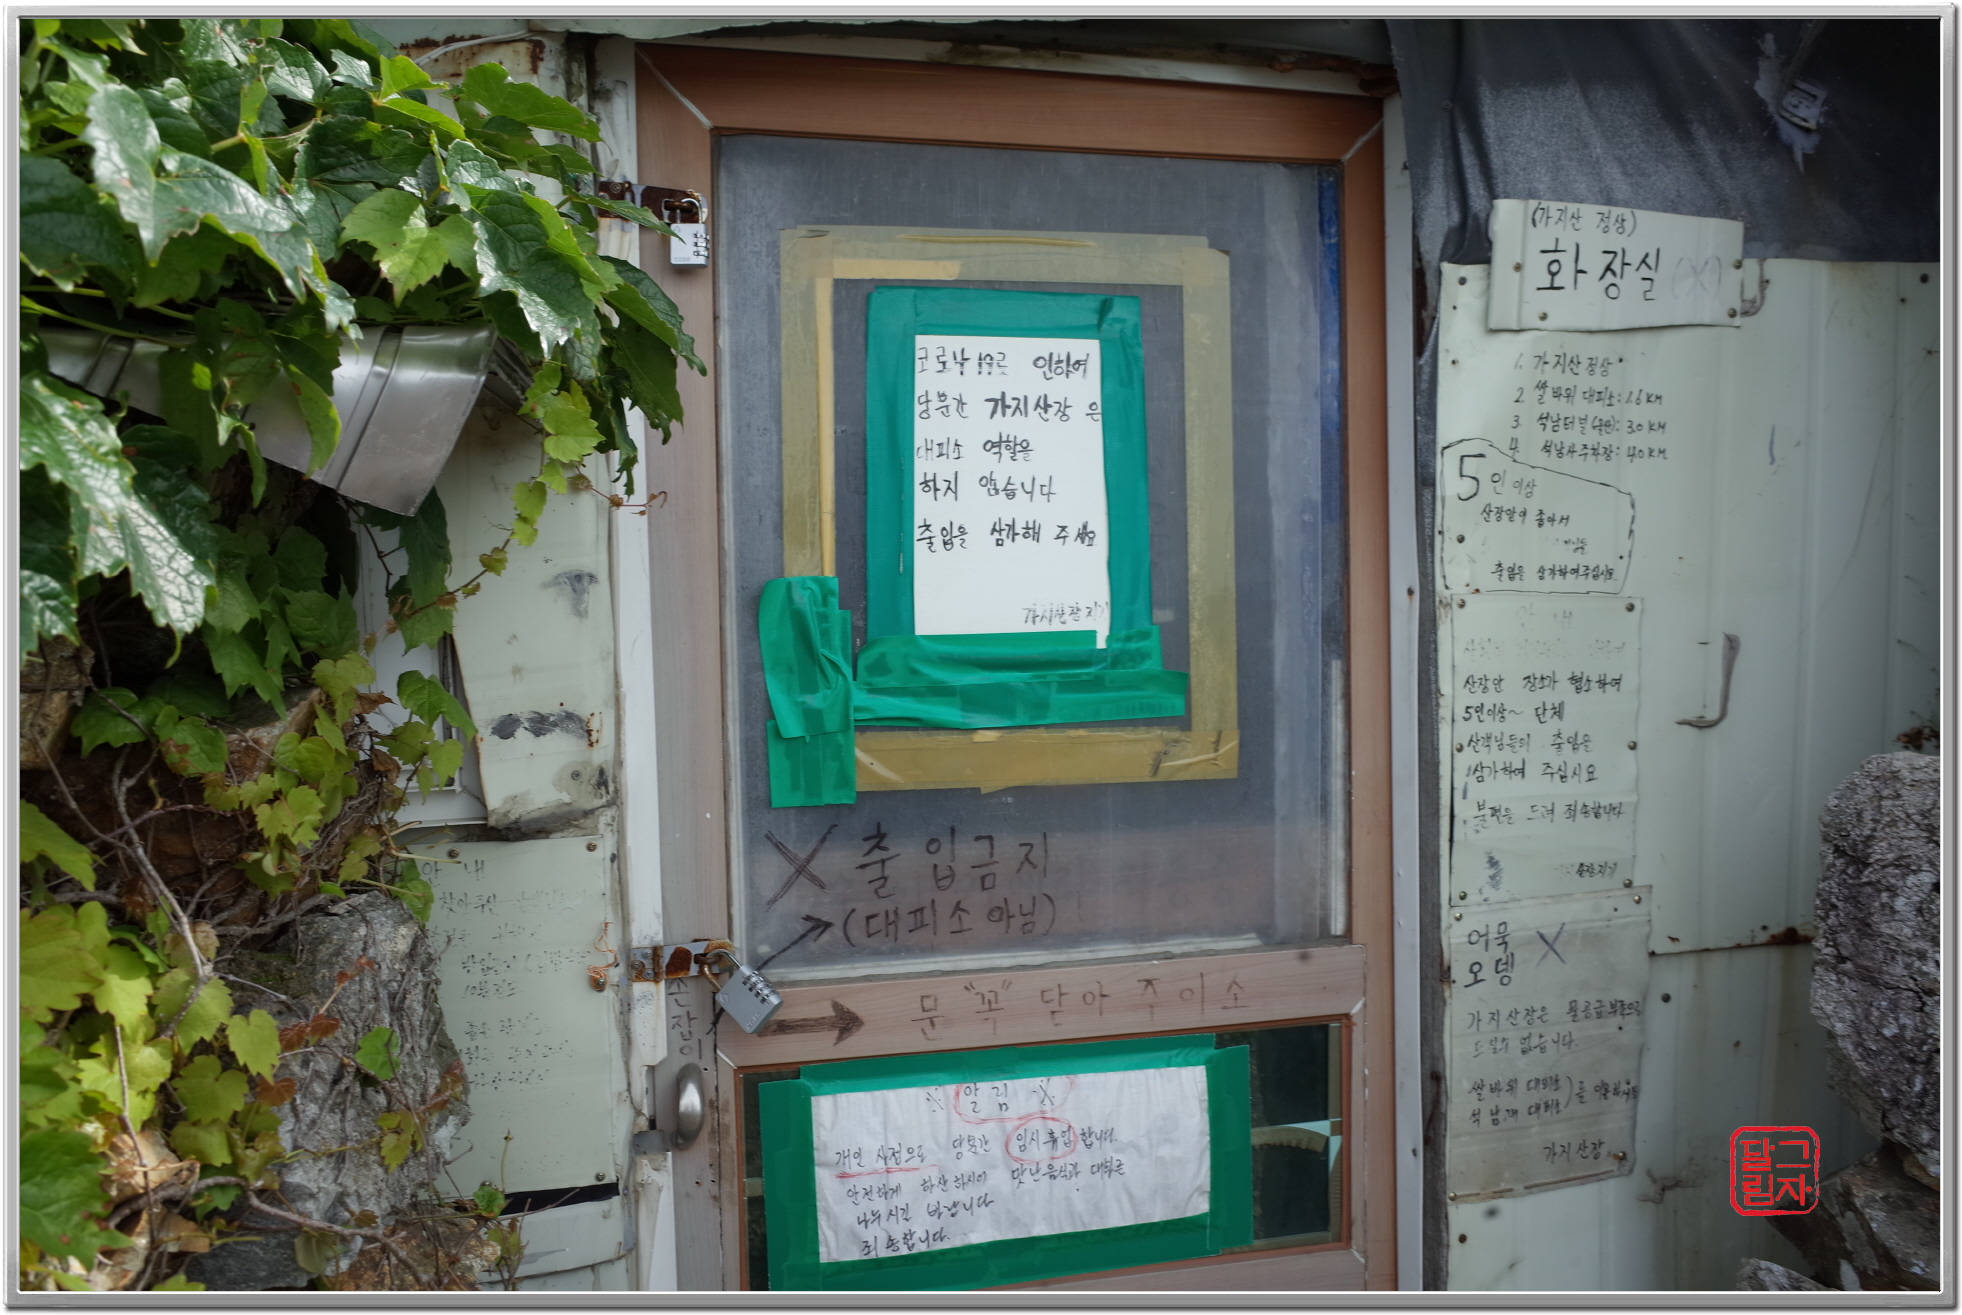 코로나 19로 인하여
당분간 가지산장 은
대피소 역할을
하지 않습니다
출입을 삼가해 주세요
가지산장지기
X 출입금지
→ (대피소 아님)
손잡이 → 문 "꼭" 닫아 주이소
※ 알림 ※
개인 사정으로 당분간 임시휴업 합니다.
안전하게 하산하시어 맛난음식과
나누시길 바랍니다
죄송합니다.
(가지산 정상)
화장실 (X)
1. 가지산정상
2. 쌀바위 대피소: 1.6 KM
3. 석남터널(울산): 3.0 KM
4. 석남사주차장: 4.0 KM
5인이상
산장안이 좁아서
출입을 삼가하여주십시요
안 내
산장안 장소가 협소하여
5인이상~ 단체
산객님들의 출입을
삼가하여 주십시요
불편을 드려 죄송합니다
산장지기
어묵 X
오뎅
가지산장은 물공급부족으로
드실수 없습니다.
쌀바위 대피소
석남재 대피소) 를
가지산장
안 내
달그림자